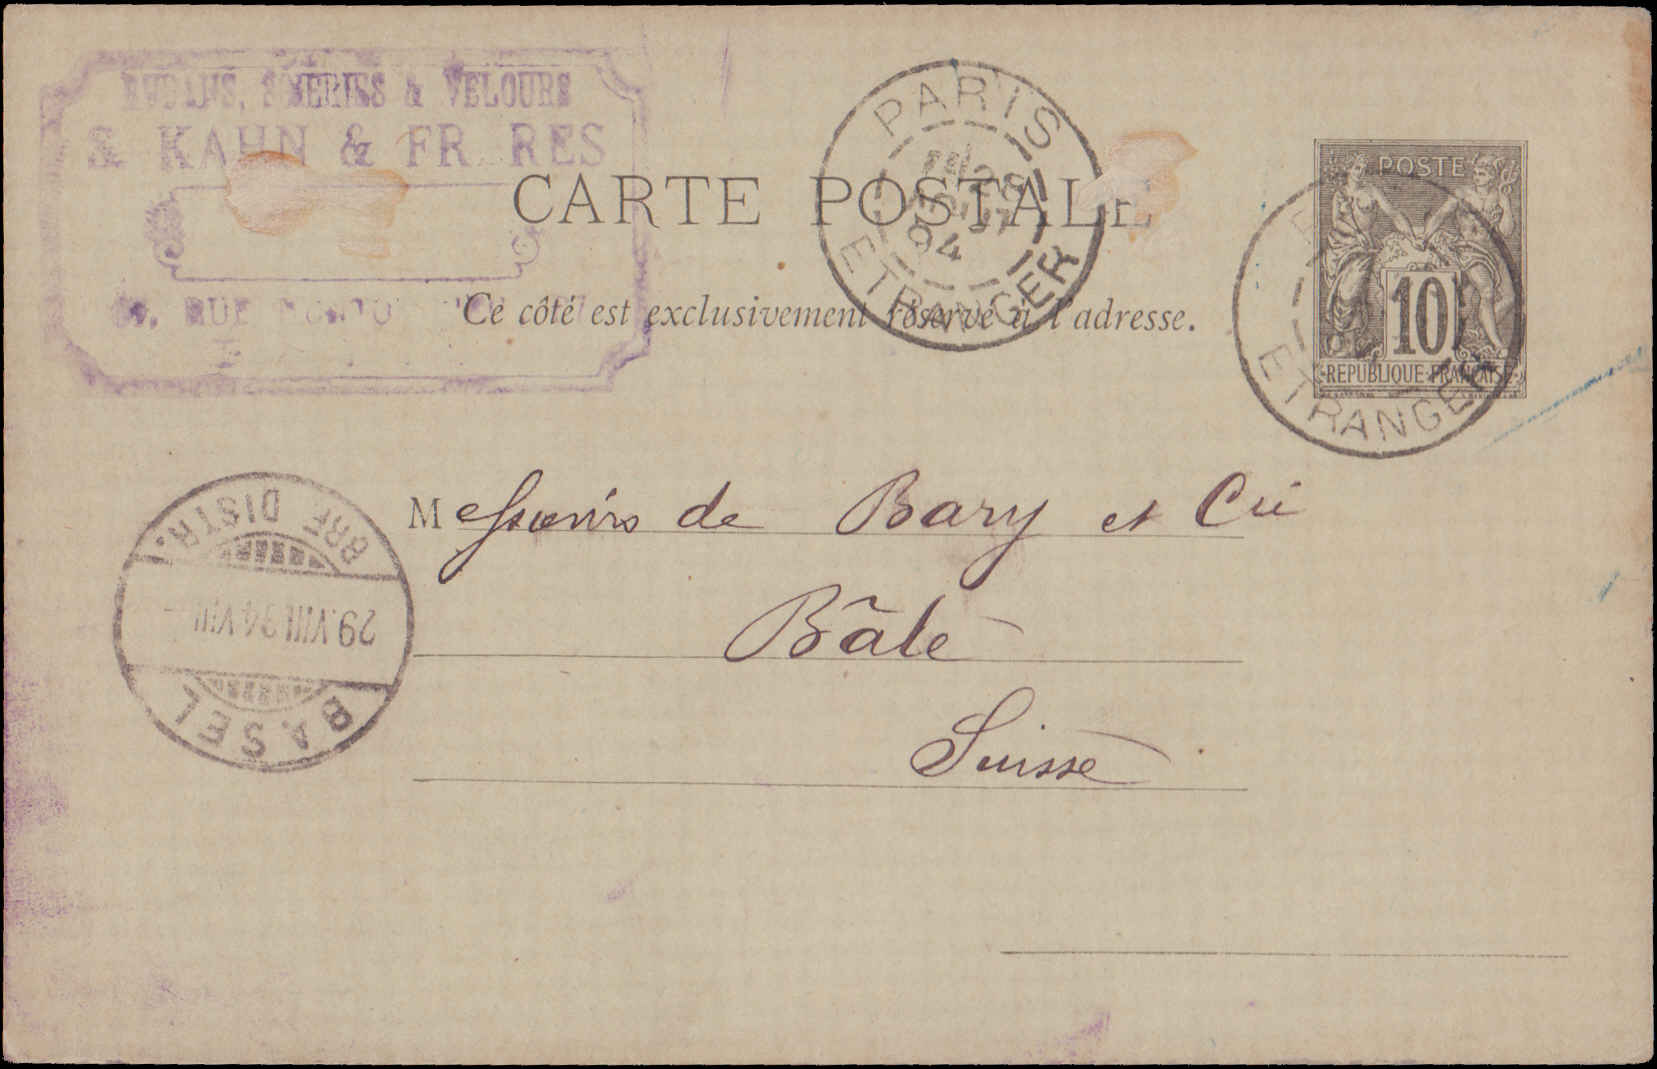 & VELOURS
S. KAHN & FR RES
RUE
PARIS
28
94
ETRANGER
CARTE POSTALE
Ce côté est exclusivement réservé à l'adresse.
POSTE
10
REPUBLIQUE FRANCAISE
ETRANGER
Messieurs de Bary et Cie
Bâle
Suisse
BRF. DISTR.
29.VIII.94.VIII
BASEL